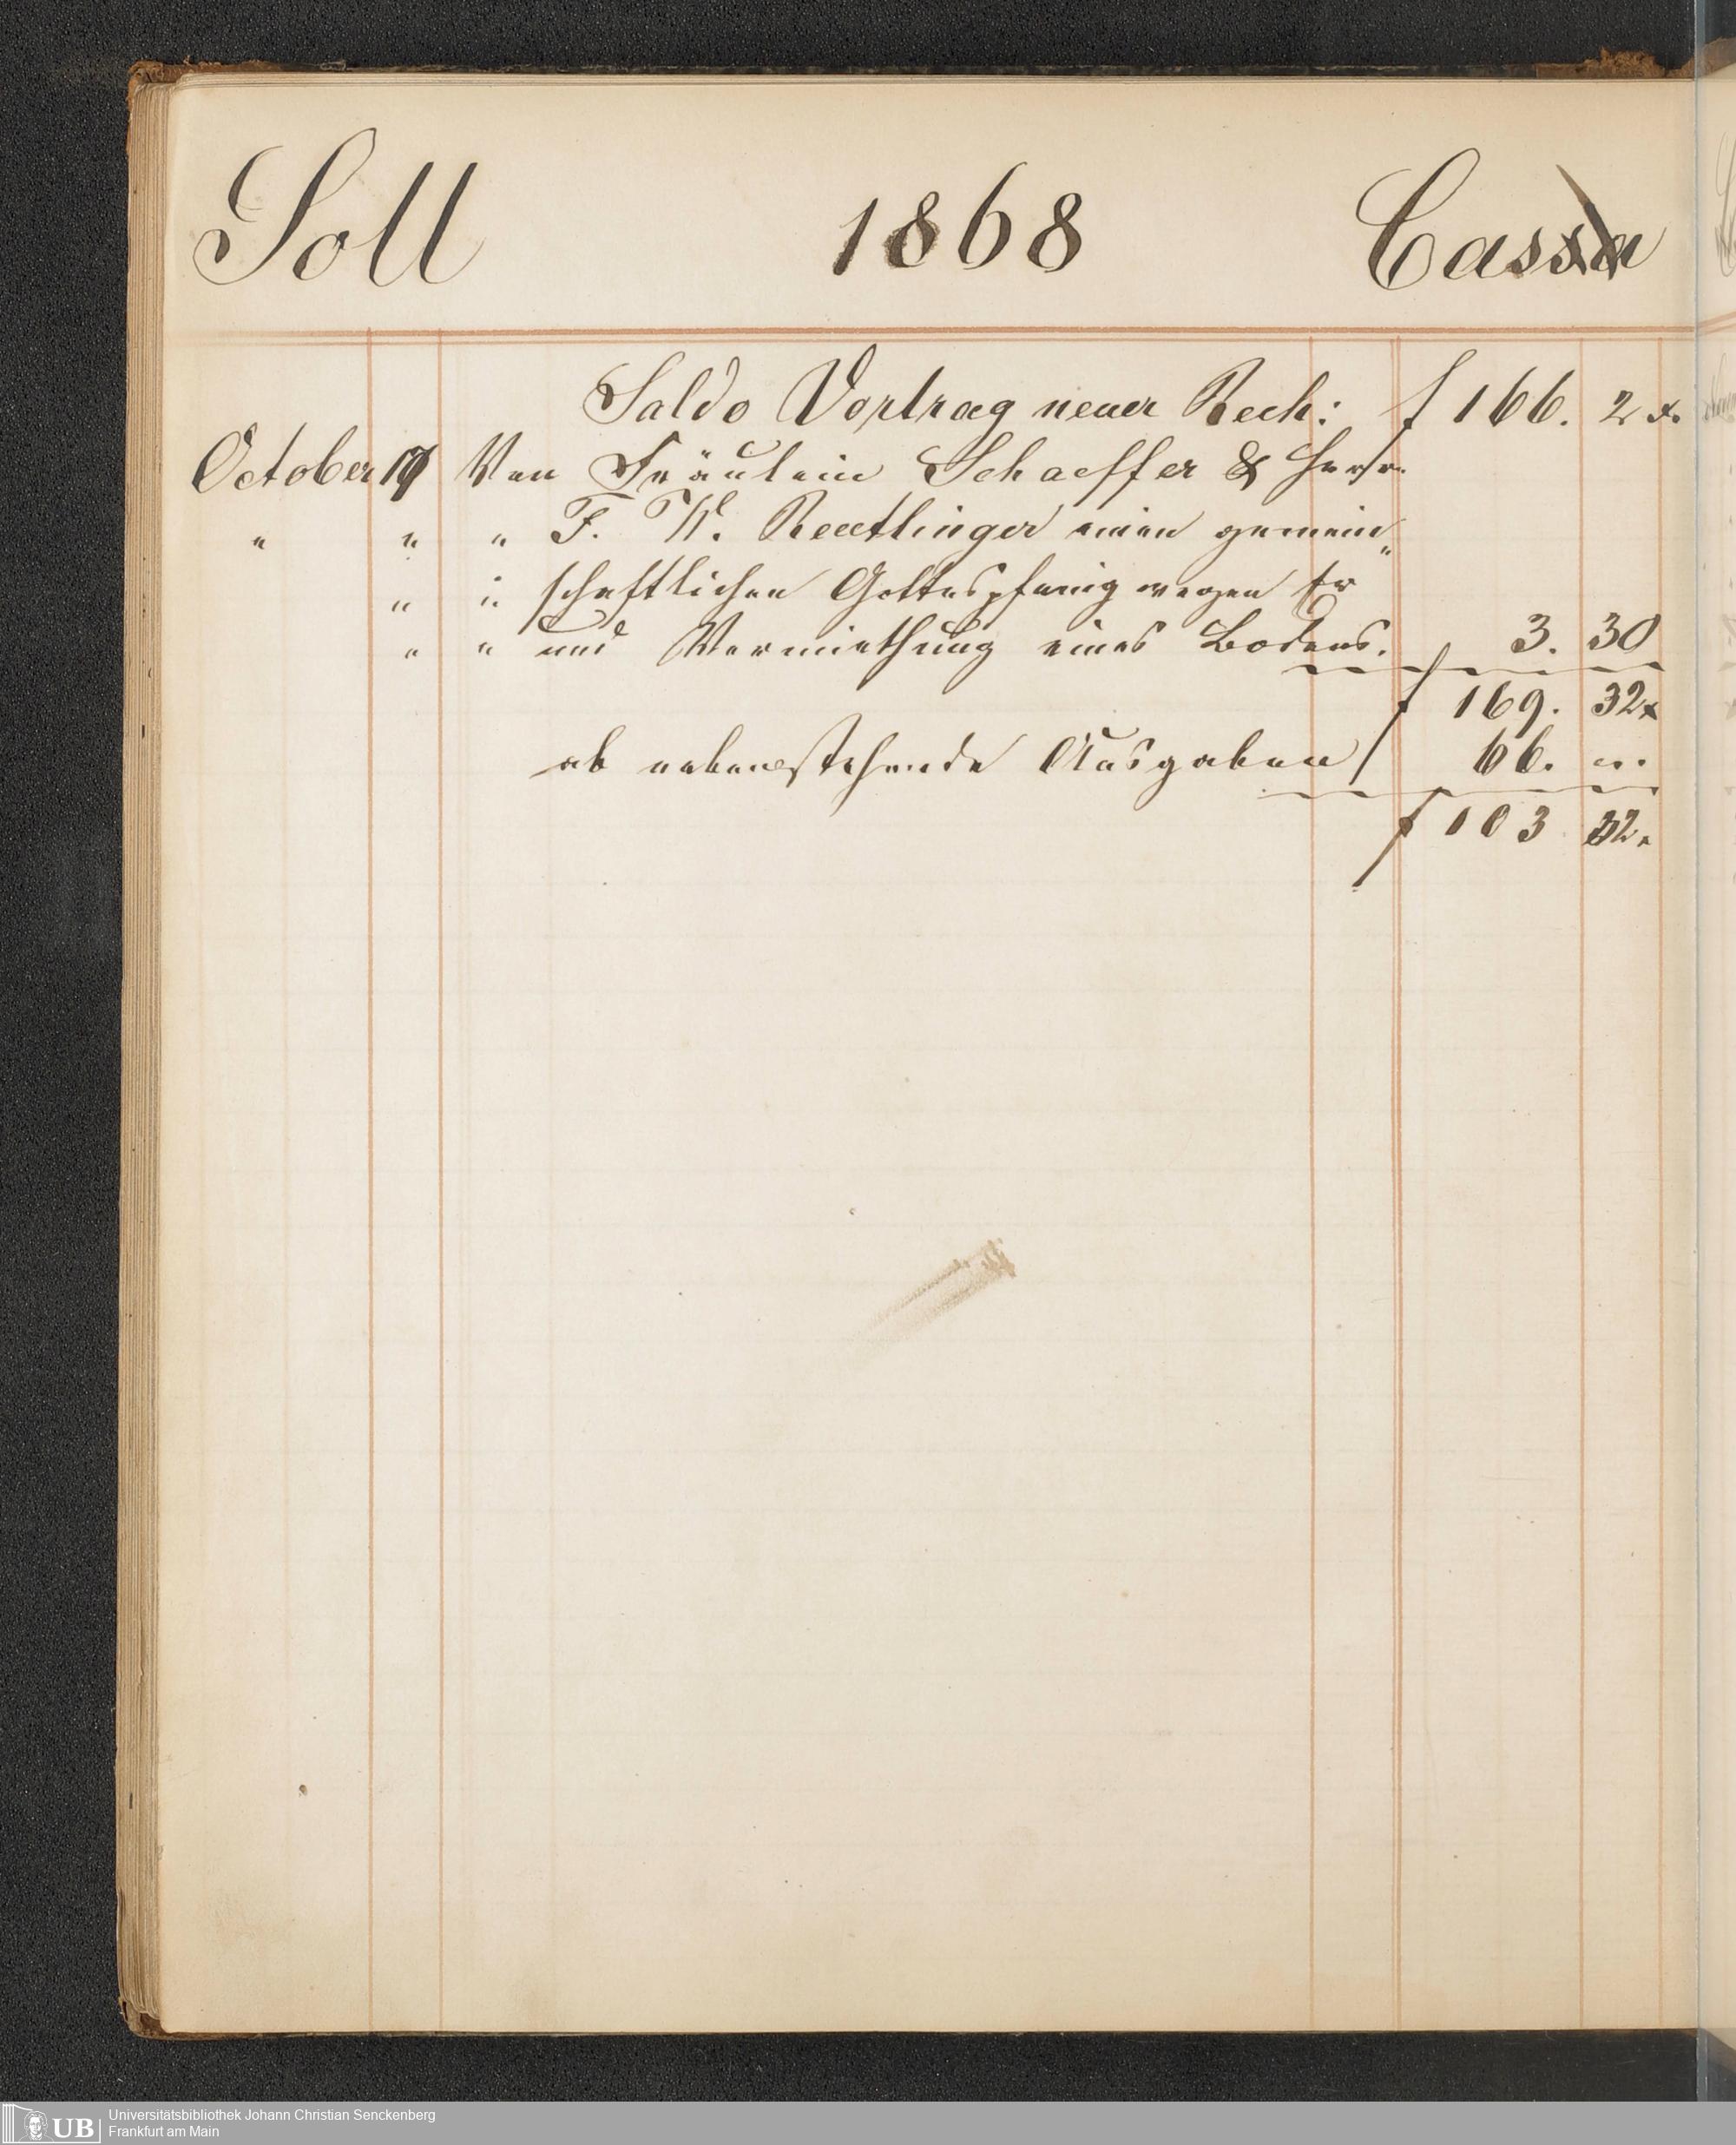 Soll 1868 Cassa
Saldo Vortrag neuer Rech: f 166. 2 x.
October 19 Von Fräulein Schaeffer & Herrn
" " " F. W. Reutlinger einen gemein„
" " schaftlichen Gottespfenig wegen Er
" " und Vermiethung eines Bodens. 3. 30
f 169. 32x
ab nebenstehende Ausgaben f 66. "
f 103 32.
UB Universitätsbibliothek Johann Christian Senckenberg
Frankfurt am Main